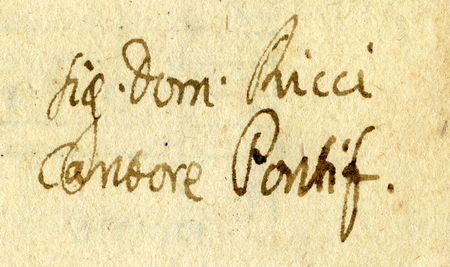 sig. Dom. Ricci
Cantore Pontif.